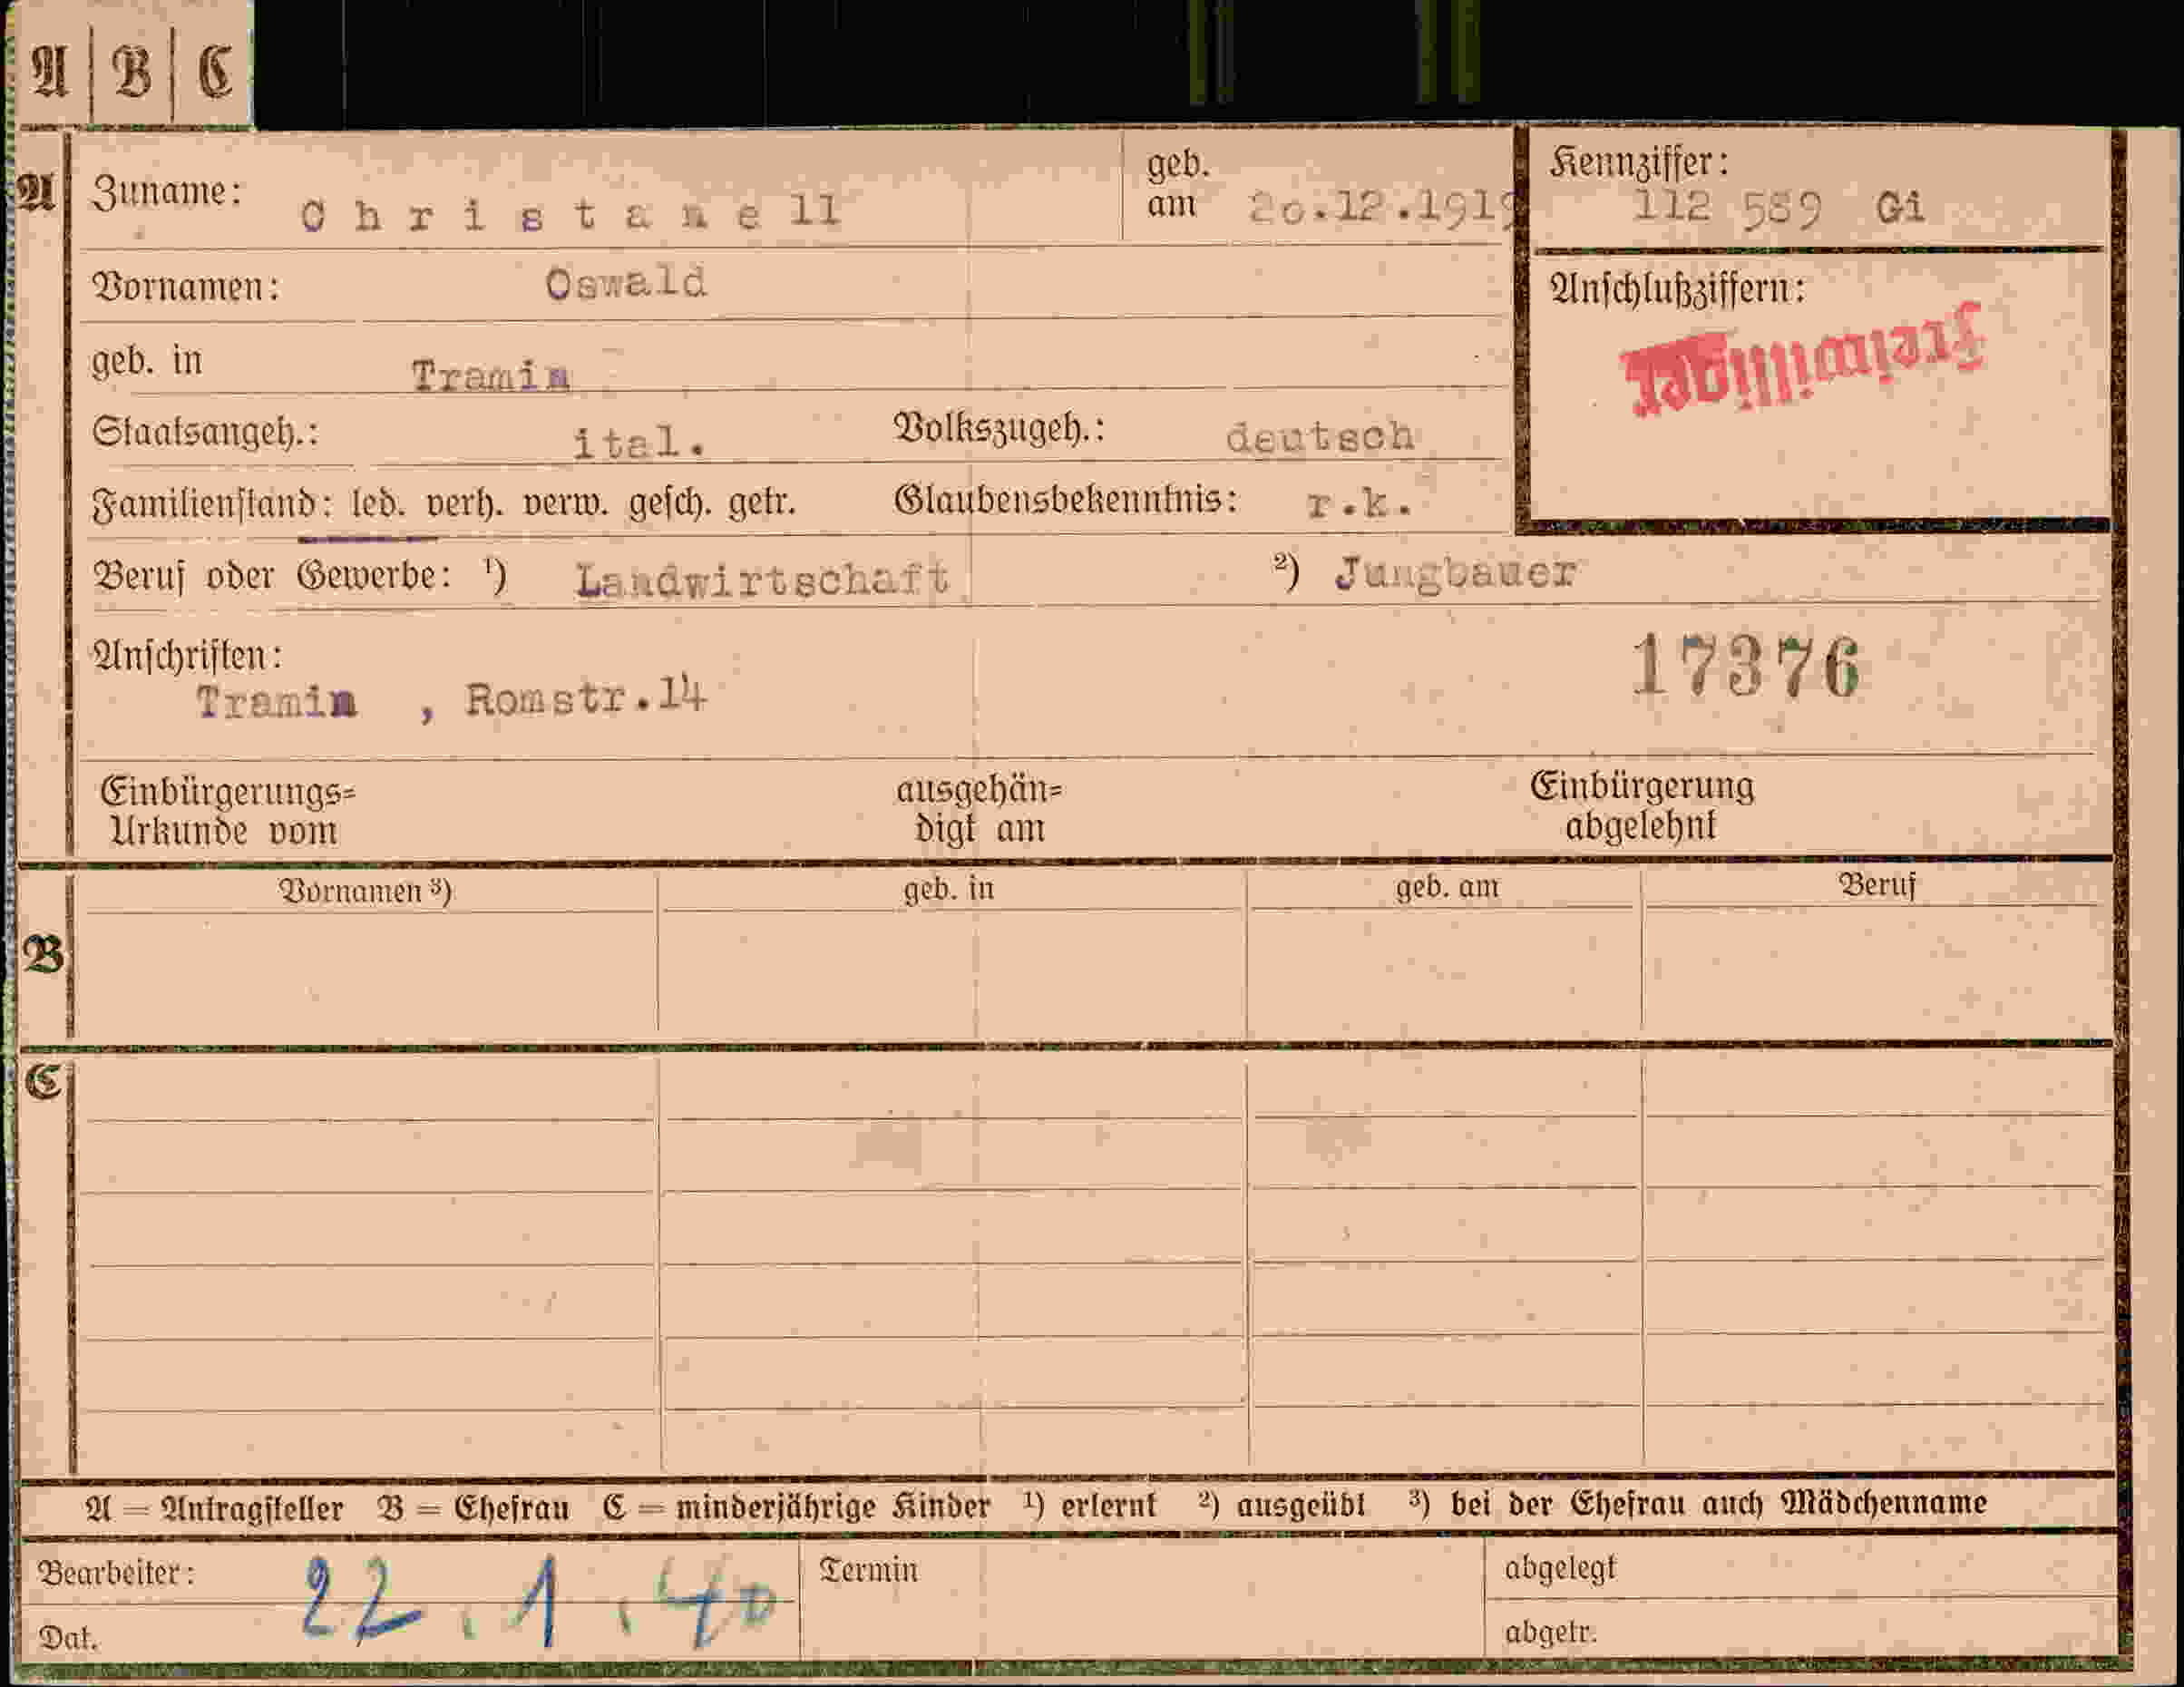 A B C
A Zuname: Christanell geb. am 20.12.1919 Kennziffer: 112 589 Gi
Vornamen: Oswald Anschlußziffern:
Freiwilliger
geb. in Tramin
Staatsangeh.: ital. Volkszugeh.: deutsch
Familienstand: led. verh. verw. gesch. getr. Glaubensbekenntnis: r.k.
Beruf oder Gewerbe: ¹) Landwirtschaft ²) Jungbauer
Anschriften: 17376
Tramin , Romstr.14
Einbürgerungs= ausgehän= Einbürgerung
Urkunde vom digt am abgelehnt
Vornamen ³) geb. in geb. am Beruf
B
C
A = Antragsteller B = Ehefrau C = minderjährige Kinder ¹) erlernt ²) ausgeübt ³) bei der Ehefrau auch Mädchenname
Bearbeiter: 22.1.40 Termin abgelegt
Dat. abgetr.